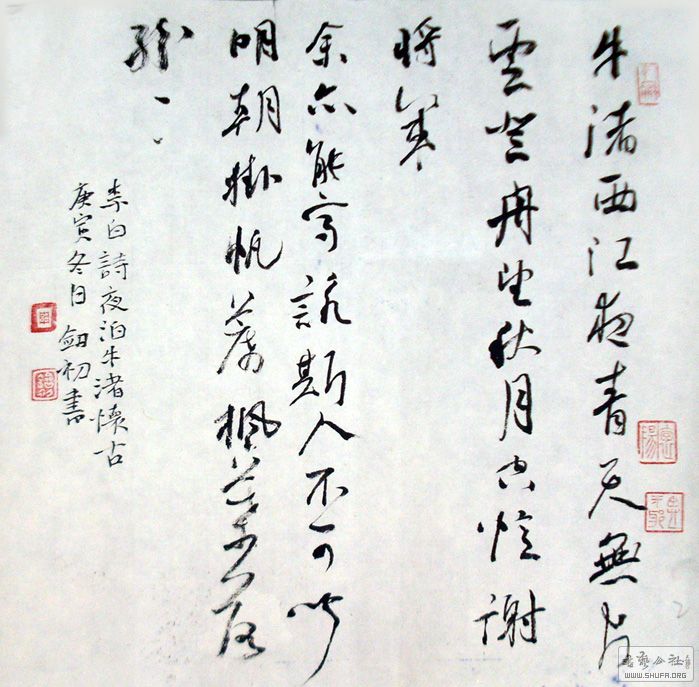 牛渚西江夜青天無片
雲登舟望秋月空憶謝
將軍
余亦能高詠斯人不可聞
明朝掛帆席楓葉落
紛〻
李白詩夜泊牛渚懷古
庚寅冬日 初書
WWW.SHUFA.ORG